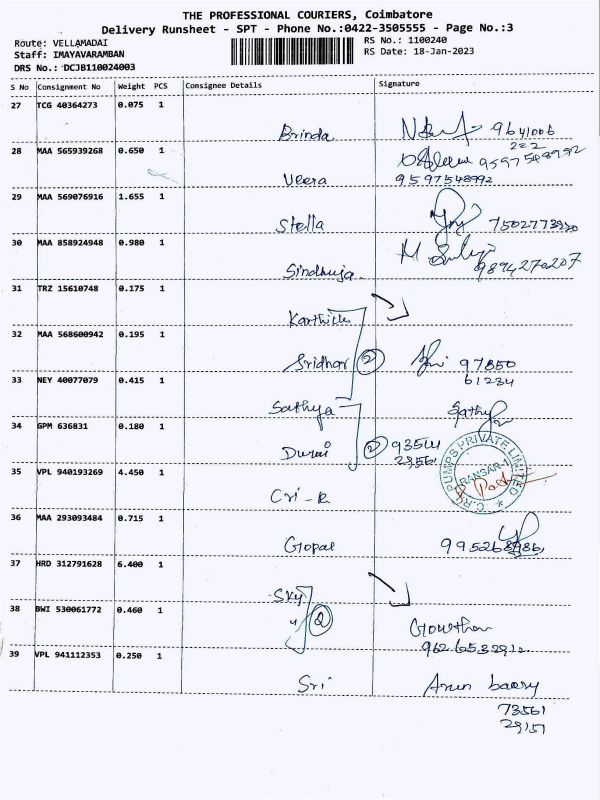 THE PROFESSIONAL COURIERS, Coimbatore
Delivery Runsheet - SPT - Phone No.:0422-3505555 - Page No.:3
Route: VELLAMADAI
RS No.: 1100240
Staff: IMAYAVARAMBAN
RS Date: 18-Jan-2023
DRS No.: DCJB110024003
S No Consignment No Weight PCS Consignee Details Signature
27 TCG 40364273 0.075 1
Brinda 9641006
222
28 MAA 565939268 0.650 1
9597548992
Veera 9597548992
29 MAA 569076916 1.655 1
Stella 7502773920
30 MAA 858924948 0.980 1
Sindhuja 9894270207
31 TRZ 15610748 0.175 1
Karthick
32 MAA 568600942 0.195 1
Sridhar 2 97850
61234
33 NEY 40077079 0.415 1
Sathya Sathy
34 GPM 636831 0.180 1
Durai 2 93544
29561
35 VPL 940193269 4.450 1
PUMPS PRIVATE LIMITED
Cri-R
36 MAA 293093484 0.715 1
Gopal
37 HRD 312791628 6.400 1
Sky
38 BWI 530061772 0.460 1
" 2 Gowtham
9626532912
39 VPL 941112353 0.250 1
Sri Arun
73561
29157